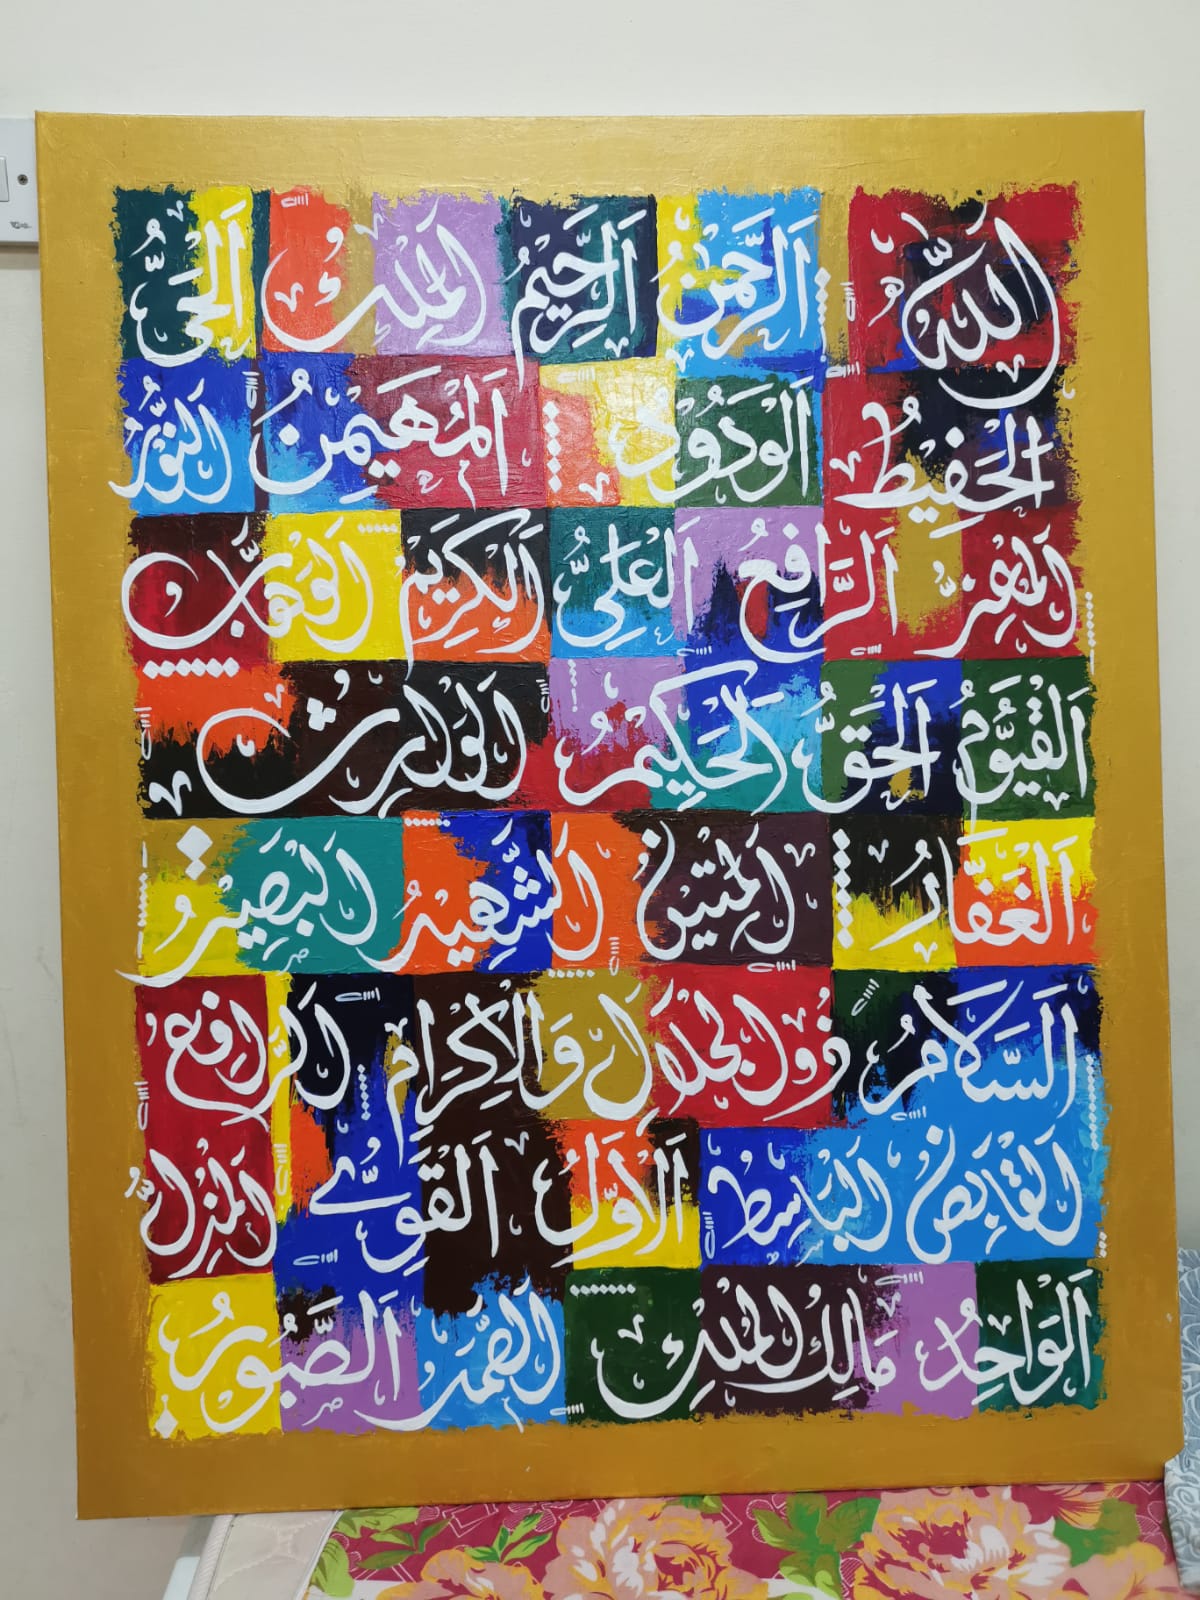 اللّٰهُ الرَّحْمٰنُ الرَّحِيْمُ الْمَلِكُ الْحَیُّ
الْحَفِيْظُ الْوَدُوْدُ الْمُهَيْمِنُ النُّوْرُ
الْمُعِزُّ الرَّافِعُ الْعَلِیُّ الْكَرِيْمُ الْوَهَّابُ
الْقَيُّوْمُ الْحَقُّ الْحَكِيْمُ الْوَارِثُ
الْغَفَّارُ الْمَتِيْنُ الشَّهِيْدُ الْبَصِيْرُ
السَّلَامُ ذُوالْجَلَالِ وَالْاِكْرَامِ الرَّافِعُ
الْقَابِضُ الْبَاسِطُ الْاَوَّلُ الْقَوِیُّ الْمُذِلُّ
الْوَاحِدُ مَالِكُ الْمُلْكِ الصَّمَدُ الصَّبُوْرُ